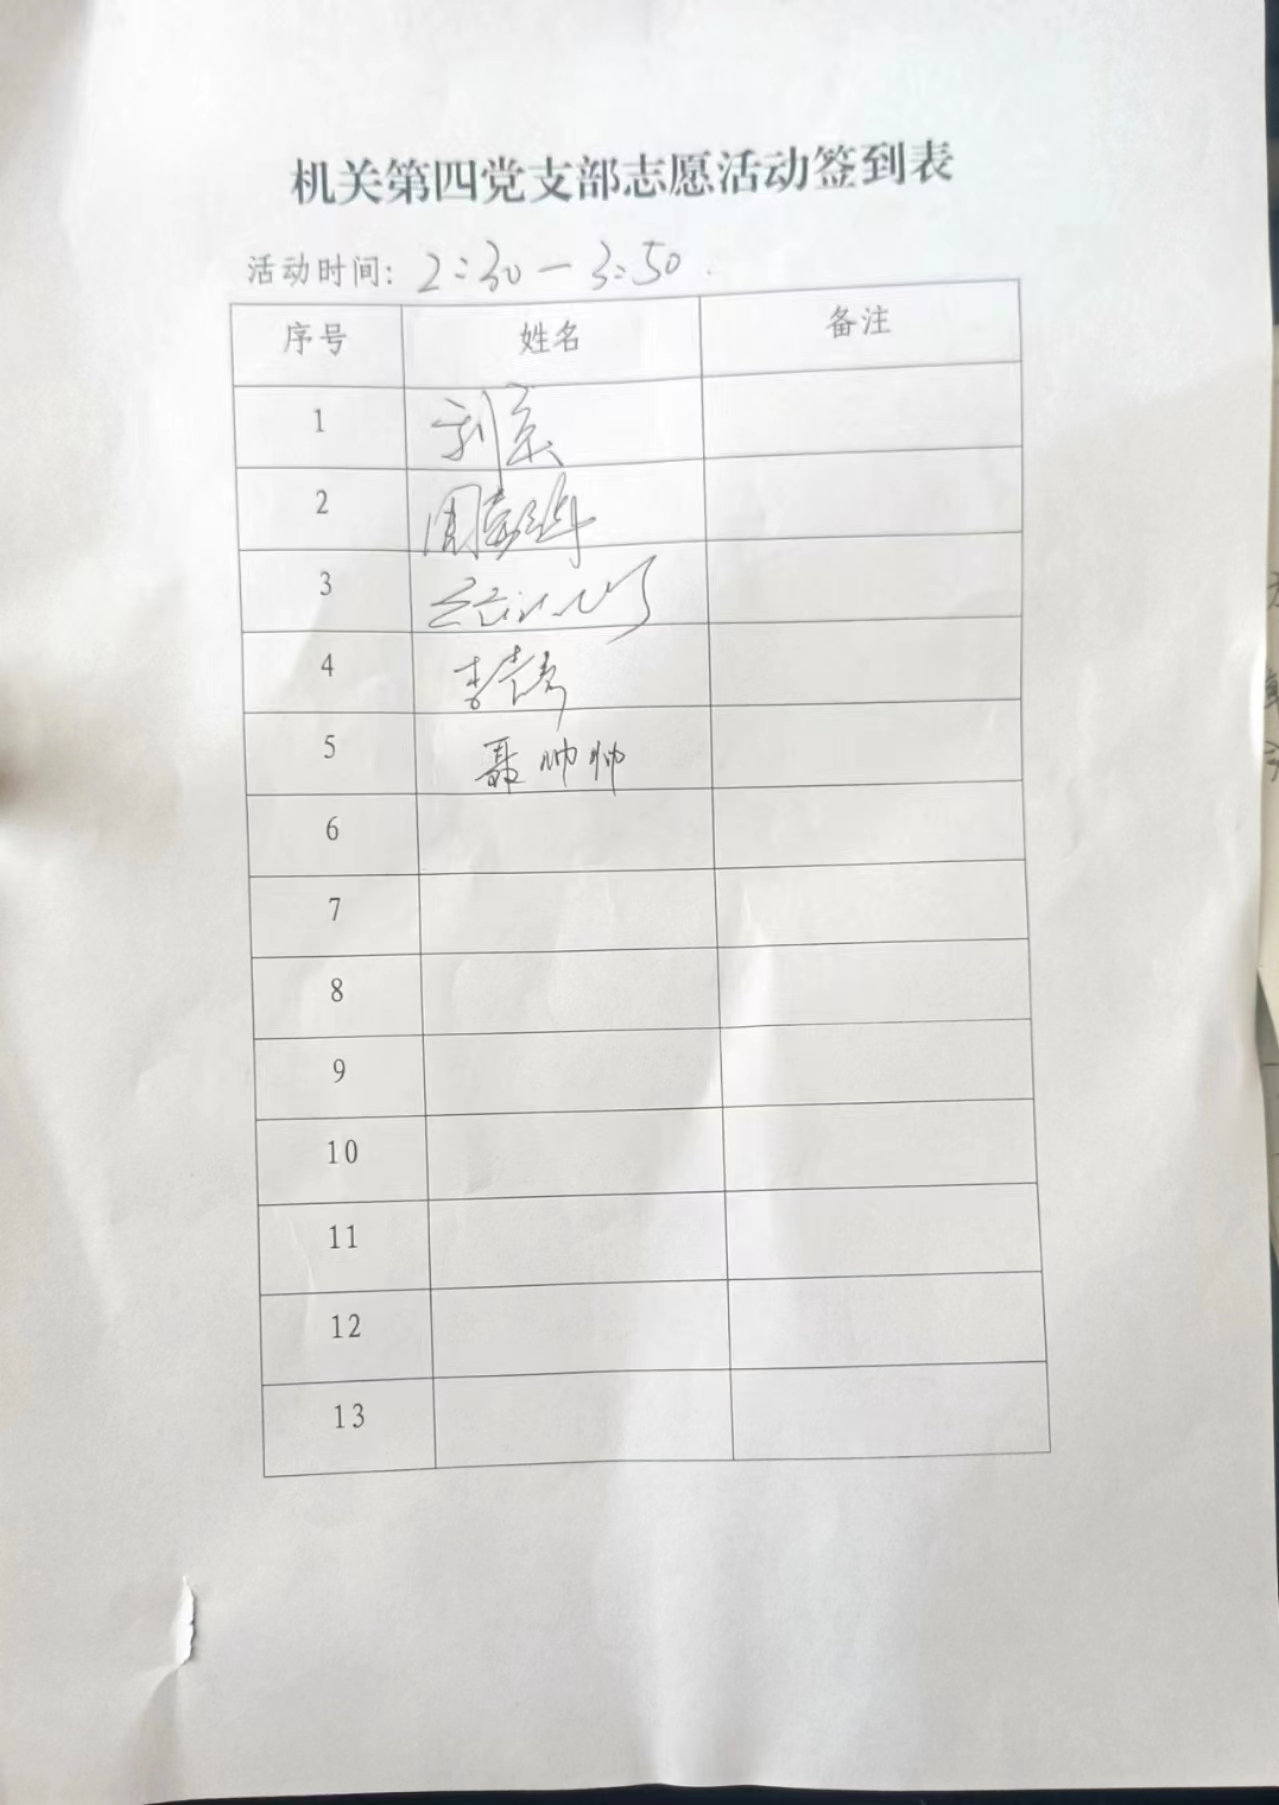 机关第四党支部志愿活动签到表
活动时间: 2:30-3:50
序号 姓名 备注
1
2 周
3
4 李
5 聂帅帅
6
7
8
9
10
11
12
13